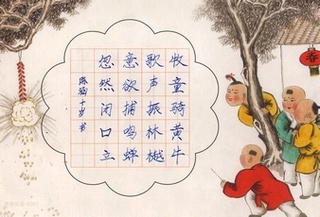 牧童骑黄牛
歌声振林樾
意欲捕鸣蝉
忽然闭口立
十岁书
春